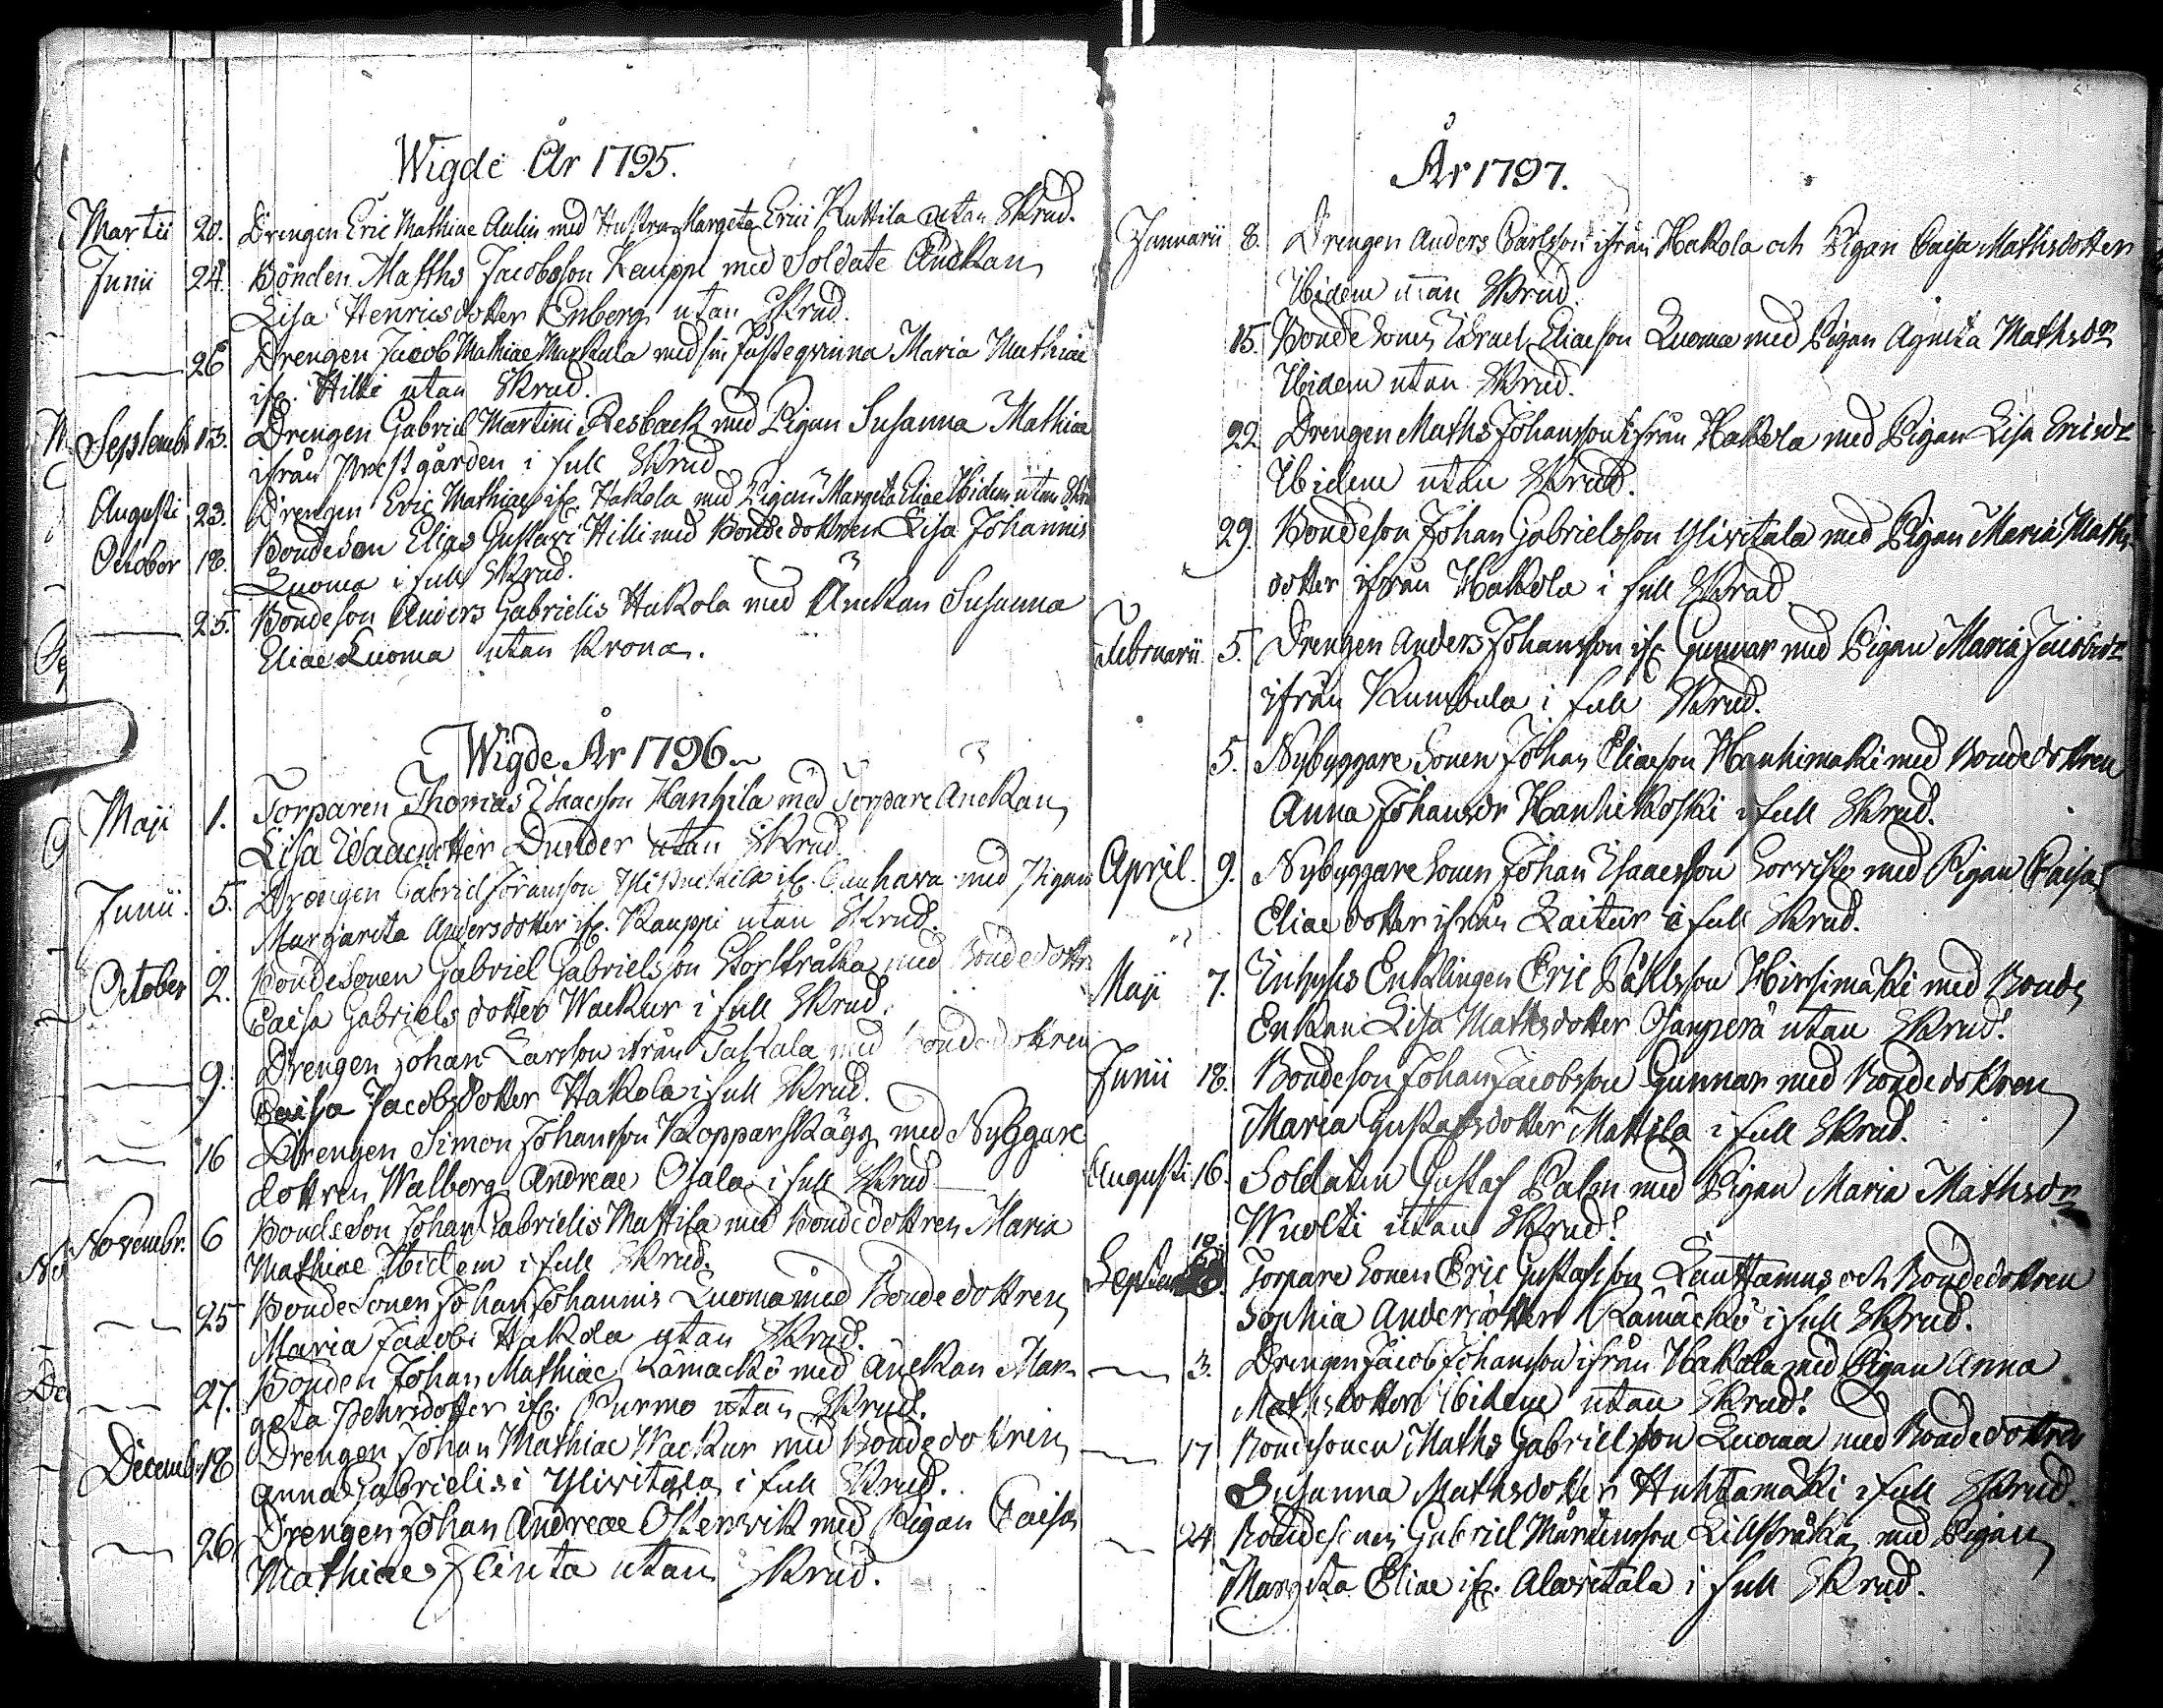 Wigde År 1795.
Martii 20. Drengen Eric Mathiae Aulin med Hustru Margeta Erici Kuttila utan Skrud.
Junii 24. Bonden Matths Jacobsson Kauppi med Soldate Änckan
Lisa Henricsdotter Enberg utan Skrud.
26 Drengen Jacob Mathiae Markula med sin fästeqvinna Maria Mathiae
ifr. Hilli utan Skrud.
Septembr 13. Drengen Gabriel Martini Resback med Pigan Susanna Mathiae
ifrån Prestgården i full Skrud
Augusti 23. Drengen Eric Mathiae ifr. Hakola med Pigan Margeta Eliae Ibidem utan Skru
October 18. Bondeson Elias Gustavi Hilli med Bondedottren Lisa Johannis
Luoma i full Skrud.
25. Bondeson Anders Gabrielis Hakola med Änckan Susanna
Eliae Luoma utan Krona.
Wigde År 1796.
Maji 1. Torparen Thomas Isaacsson Kanhila med Torpare Änckan
Lisa Isaacsdotter Dunder utan Skrud.
Junii. 5. Drengen Gabriel Göransson ifr. med Pigan
Margareta Andersdotter ifr. Kauppi utan Skrud.
October 2. Bondesonen Gabriel Gabrielsson Storstråka med Bondedottr
Caisa Gabrielsdotter Wackur i full Skrud.
9. Drengen Johan Larsson ifrån Taskala med Bondedottren
Caisa Jacobsdotter Hakola i full Skrud.
16 Drengen Simon Johansson Kopparskägg med Nybggare
dottren Walborg Andreae Ojala i full Skrud
Novembr. 6 Bondeson Johan Gabrielis Mattila med Bondedottren Maria
Mathiae Ibidem i full Skrud.
25 Bondesonen Johan Johannis Luoma med Bondedottren
Maria Jacobi Hakola utan Skrud.
27. Bonden Johan Mathiae Kämäckö med Änckan Mar-
geta Pehrsdotter ifr. Purmo utan Skrud.
Decemb. 18 Drengen Johan Mathiae Wackur med Bondedottren
Anna Gabrielis i Yliwitala i full Skrud.
26. Drengen Johan Andreae Osterwik med Pigan Caisa
Mathiae Zlinta utan Skrud.
År 1797.
Januarii 8. Drengen Anders Carlsson ifrån Hakola och Pigan Caisa Mathsdotter
Ibidem utan Skrud.
15. Bondesonen Israel Eliaeson Luoma med Pigan Agneta Mathsdr
Ibidem utan Skrud.
22 Drengen Maths Johansson ifrån Hakola med Pigan Lisa Ericsdr
Ibidem utan Skrud.
29. Bondeson Johan Gabrielsson Yliwitala med Pigan Maria Maths-
dotter ifrån Hakola i full Skrud
Februarii 5. Drengen Anders Johansson ifr. Gunnar med Pigan Maria Jacobsdr
ifrån Kumbula i full Skrud.
5. Nybyggare Sonen Johan Eliaeson Hanhimäki med Bondedottren
Anna Johansdr Hanhikoski i full Skrud.
April. 9. Nybyggare Sonen Johan Isaacsson Sorvisto med Pigan Caisa
Eliaedotter ifrån Kaitur i full Skrud.
Maji 7. Inhyses Enklingen Eric Påhlsson Hirsimäki med Bonde
Enkan Lisa Mathsdotter Ojanperä utan Skrud.
Junii 18. Bondeson Johan Jacobsson Gunnar med Bondedottren
Maria Gustafsdotter Mattila i full Skrud.
Augusti 16. Soldaten Gustaf Palen med Pigan Maria Mathsdr
Wuolti utan Skrud.
Septem 10. Torpare Sonen Eric Gustafsson Lauttamus och Bondedottren
Sophia Andersdotter Kämäckö i full Skrud.
3. Drengen Jacob Johansson ifrån Hakola med Pigan Anna
Mathsdotter Ibidem utan Skrud.
17 Bondesonen Maths Gabrielsson Luoma med Bondedottren
Susanna Mathsdotter Huhtamäki i full Skrud.
24 Bondesonen Gabriel Mårtensson Lillstråka med Pigan
Margeta Eliae ifr. Alavitala i full Skrud.